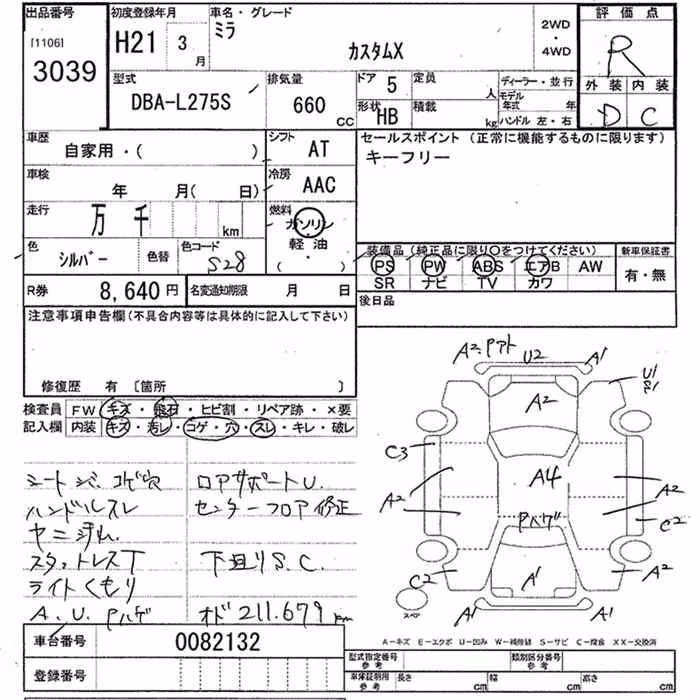 出品番号 初度登録年月 車名・グレード 評価点
[1106] H21 3月 ミラ 2WD・4WD R
3039 カスタムX
外装 内装
D C
型式 排気量 ドア 5 定員 人 ディーラー・並行
DBA-L275S 660 CC 形状 HB 積載 kg モデル年式 年
ハンドル 左・右
車歴 シフト セールスポイント (正常に機能するものに限ります)
自家用・( ) AT キーフリー
車検 冷房
年 月( 日) AAC
走行 燃料
万 千 km ガソリン・軽油
( )
色 色替 色コード 装備品 (純正品に限り○をつけてください) 新車保証書
シルバー S28 PS PW ABS エアB AW 有・無
SR ナビ TV カワ
R券 8,640円 名変通知期限 月 日 後日品
注意事項申告欄 (不具合内容等は具体的に記入して下さい)
修復歴 有 〔箇所 〕
検査員 FW キズ・飛石・ヒビ割・リペア跡・×要
記入欄 内装 キズ・汚レ・コゲ・穴・スレ・キレ・破レ
シートシミ、コゲ穴 ロアサポートU.
ハンドルスレ センターフロア修正
ヤニ汚れ
スタットレスT 下廻りS.C.
ライトくもり
A.U.Pハゲ オド 211.679km
A2.Pアト U2 A1
U1
S1
A2
C3
A4
A2 A2
A2 C2
Pハゲ
C2 A2
A1
A1 A1
スペア
A-キズ E-エクボ U-凹み W-補修跡 S-サビ C-腐食 XX-交換済
車台番号 0082132
登録番号
型式指定番号 参考 類別区分番号 参考
車庫証明用 参考 長さ cm 幅 cm 高さ cm